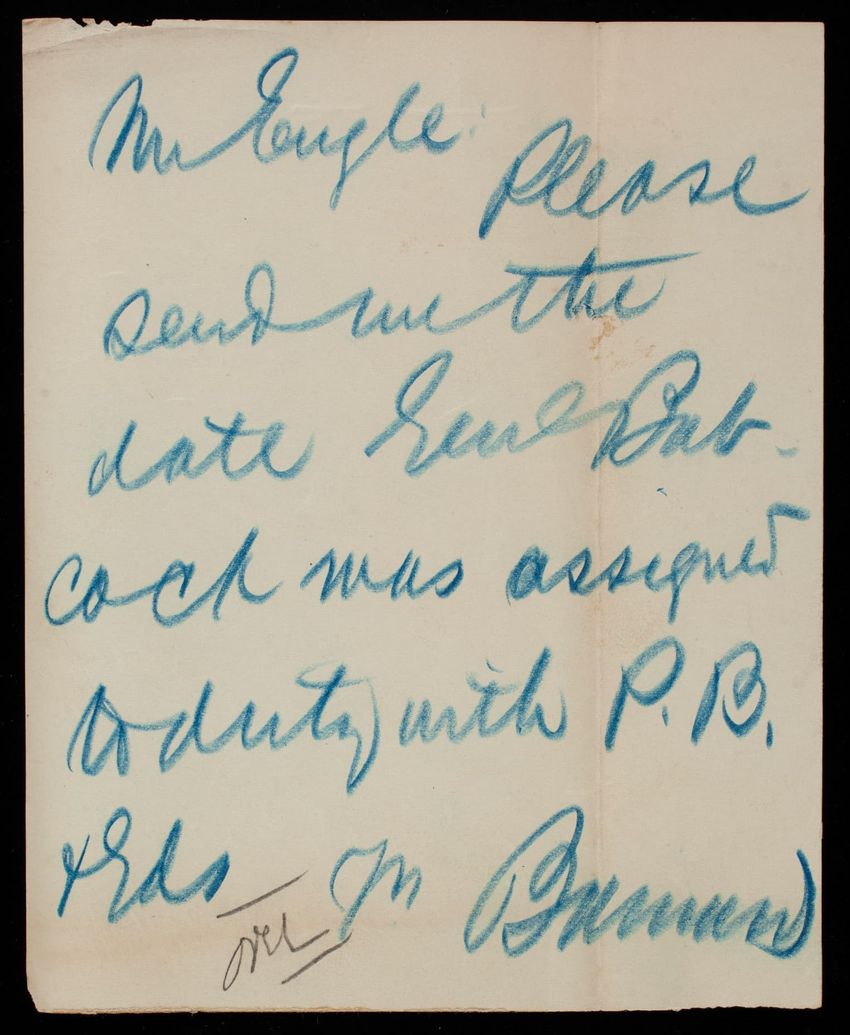 Mr Engle: Please
send me the
date Genl Bab-
cock was assigned
to duty with P. B.
& Gds
over